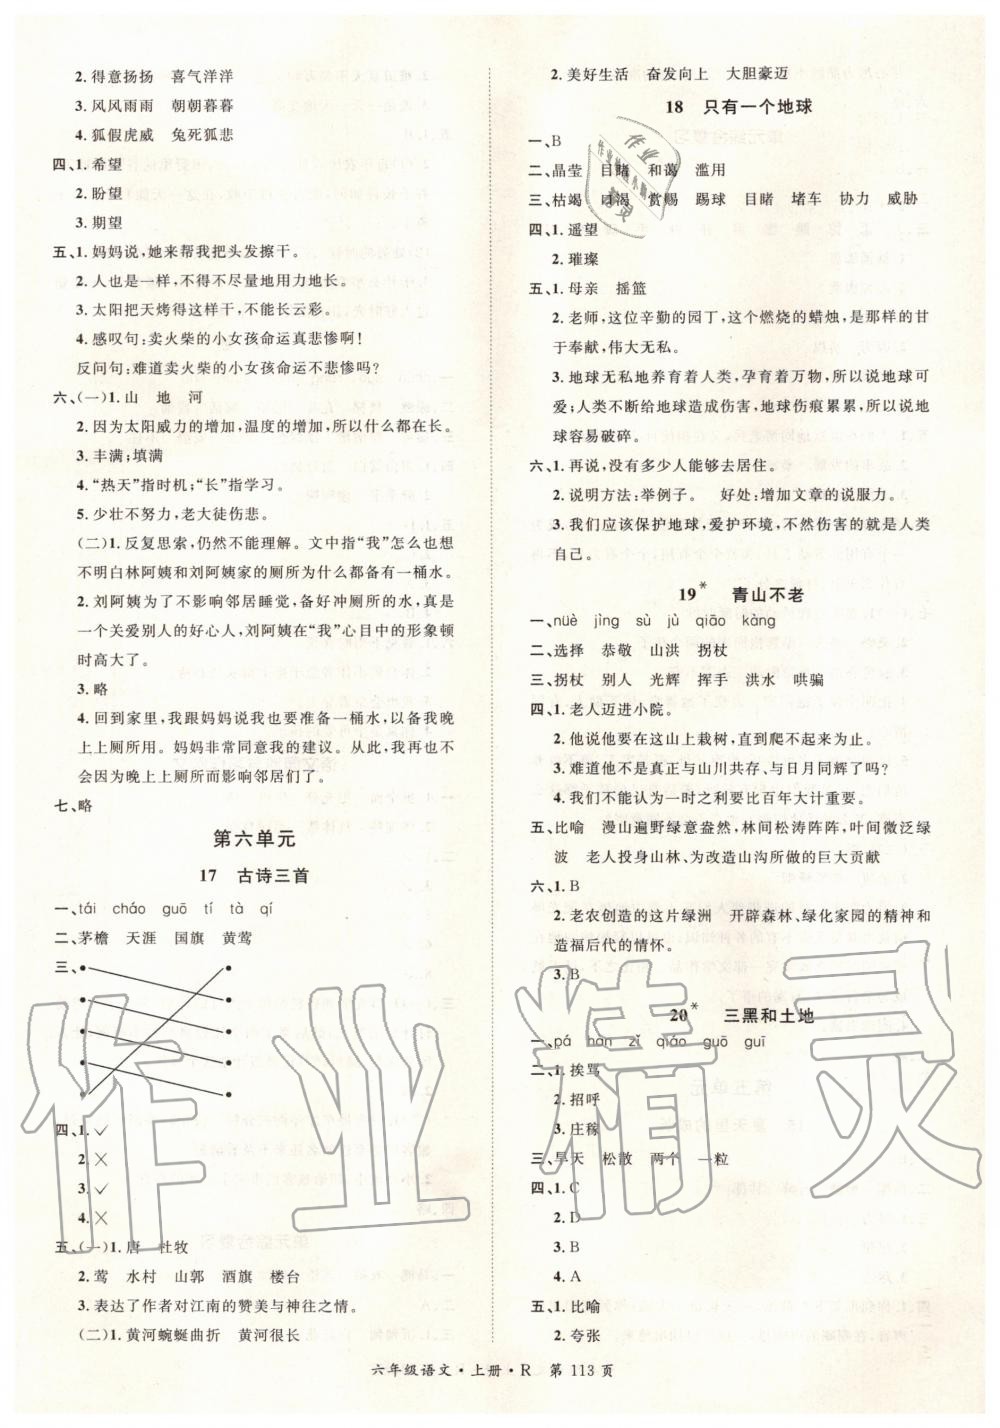 2. 得意扬扬 喜气洋洋
3. 风风雨雨 朝朝暮暮
4. 狐假虎威 兔死狐悲
四、1. 希望
2. 盼望
3. 期望
五、1. 妈妈说,她来帮我把头发擦干。
2. 人也是一样,不得不尽量地用力地长。
3. 太阳把天烤得这样干,不能长云彩。
4. 感叹句:卖火柴的小女孩命运真悲惨啊!
反问句:难道卖火柴的小女孩命运不悲惨吗?
六、(一)1. 山 地 河
2. 因为太阳威力的增加,温度的增加,所以什么都在长。
3. 丰满;填满
4. “热天”指时机;“长”指学习。
5. 少壮不努力,老大徒伤悲。
(二)1. 反复思索,仍然不能理解。文中指“我”怎么也想
不明白林阿姨和刘阿姨家的厕所为什么都备有一桶水。
2. 刘阿姨为了不影响邻居睡觉,备好冲厕所的水,真是
一个关爱别人的好心人,刘阿姨在“我”心目中的形象顿
时高大了。
3. 略
4. 回到家里,我跟妈妈说我也要准备一桶水,以备我晚
上上厕所用。妈妈非常同意我的建议。从此,我再也不
会因为晚上上厕所而影响邻居们了。
七、略
第六单元
17 古诗三首
一、tái cháo guō tí tà qí
二、茅檐 天涯 国旗 黄莺
三、
四、1. ✓
2. ×
3. ✓
4. ×
五、(一)1. 唐 杜牧
2. 莺 水村 山郭 酒旗 楼台
3. 表达了作者对江南的赞美与神往之情。
(二)1. 黄河蜿蜒曲折 黄河很长
2. 美好生活 奋发向上 大胆豪迈
18 只有一个地球
一、B
二、晶莹 目睹 和蔼 滥用
三、枯竭 口渴 赏赐 踢球 目睹 堵车 协力 威胁
四、1. 遥望
2. 璀璨
五、1. 母亲 摇篮
2. 老师,这位辛勤的园丁,这个燃烧的蜡烛,是那样的甘
于奉献,伟大无私。
3. 地球无私地养育着人类,孕育着万物,所以说地球可
爱;人类不断给地球造成伤害,地球伤痕累累,所以说地
球容易破碎。
六、1. 再说,没有多少人能够去居住。
2. 说明方法:举例子。 好处:增加文章的说服力。
3. 我们应该保护地球,爱护环境,不然伤害的就是人类
自己。
19* 青山不老
一、nüè jìng sù jù qiāo kàng
二、选择 恭敬 山洪 拐杖
三、拐杖 别人 光辉 挥手 洪水 哄骗
四、1. 老人迈进小院。
2. 他说他要在这山上栽树,直到爬不起来为止。
3. 难道他不是真正与山川共存、与日月同辉了吗?
4. 我们不能认为一时之利要比百年大计重要。
五、比喻 漫山遍野绿意盎然,林间松涛阵阵,叶间微泛绿
波 老人投身山林、为改造山沟所做的巨大贡献
六、1. B
2. 老农创造的这片绿洲 开辟森林、绿化家园的精神和
造福后代的情怀。
3. B
20* 三黑和土地
一、pá hàn zǐ qiáo guō guī
二、1. 挨骂
2. 招呼
3. 庄稼
三、旱天 松散 两个 一粒
四、1. C
2. D
3. B
4. A
五、1. 比喻
2. 夸张
六年级语文·上册·R 第 113 页
作业精灵